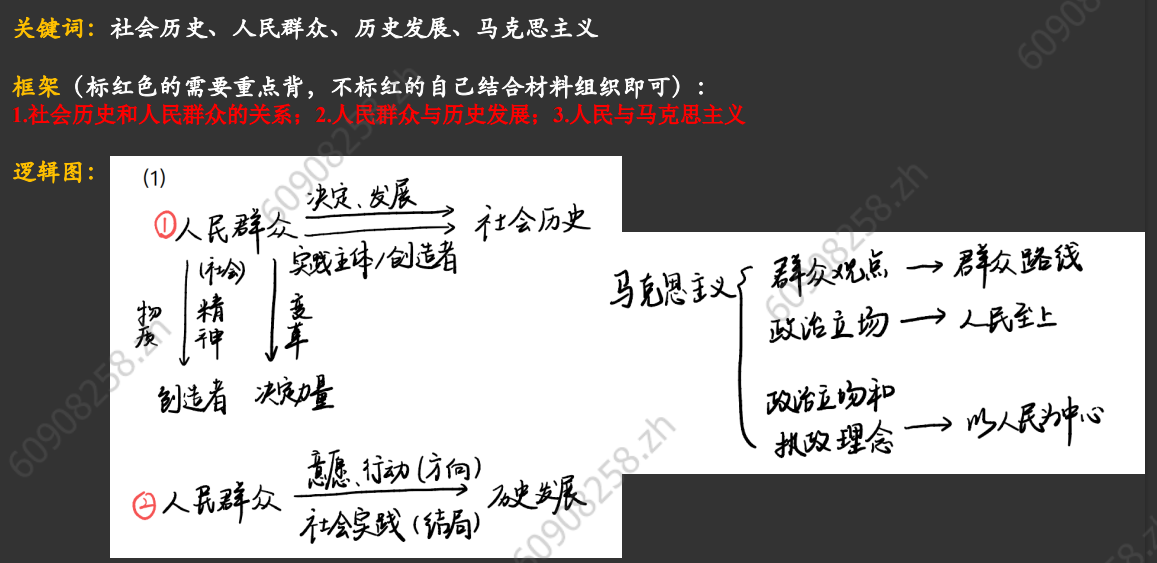 关键词：社会历史、人民群众、历史发展、马克思主义
框架（标红色的需要重点背，不标红的自己结合材料组织即可）：
1.社会历史和人民群众的关系；2.人民群众与历史发展；3.人民与马克思主义
逻辑图：
(1)
①人民群众 决定、发展 社会历史
实践主体/创造者
物质
(社会)精神
变革
创造者 决定力量
②人民群众 意愿、行动(方向) 历史发展
社会实践(结局)
马克思主义
群众观点→群众路线
政治立场→人民至上
政治立场和
执政理念→以人民为中心
60908258.zh
60908258.zh
60908258.zh
60908258.zh
60908258.zh
60908258.zh